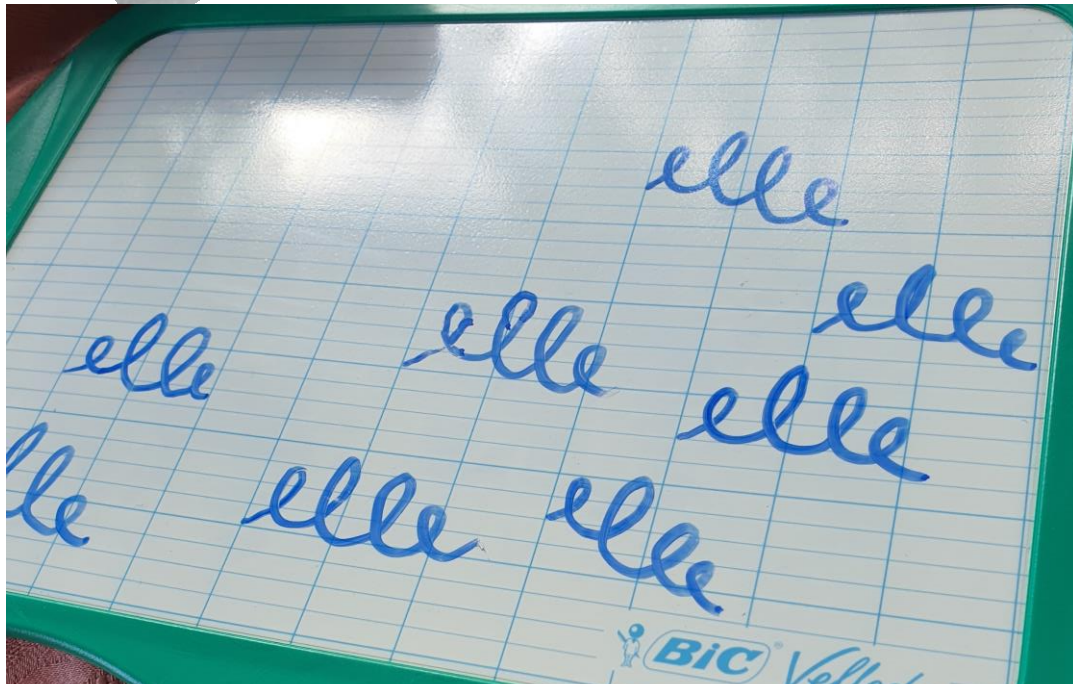 elle
elle
elle elle elle
lle elle elle
BiC Velle